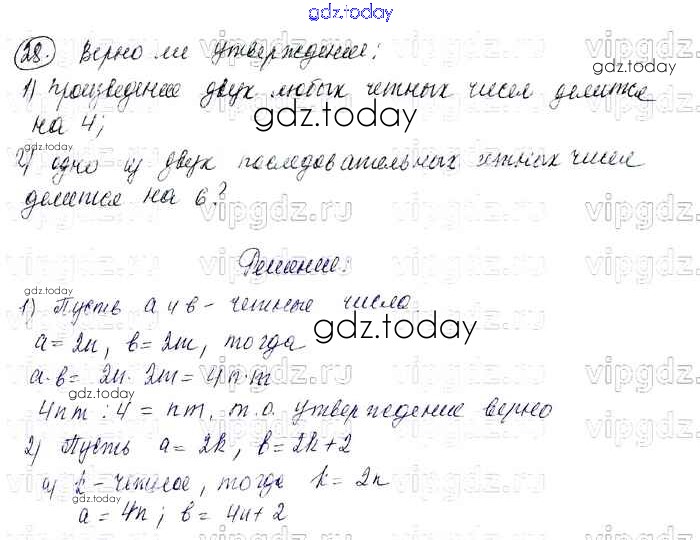 gdz.today
28. Верно ли утверждение:
1) Произведение двух любых четных чисел делится
на 4;
gdz.today
2) одно из двух последовательных четных чисел
делится на 6?
vipgdz.ru
Решение:
gdz.today
1) Пусть a и b - четные числа
gdz.today
a=2n, b=2m, тогда
a·b= 2n·2m=4n·m
gdz.today
4nm:4=nm, т.о. утверждение верно
2) Пусть a=2k, b=2k+2
а) k-четное, тогда k=2n
gdz.today
a=4n; b=4n+2